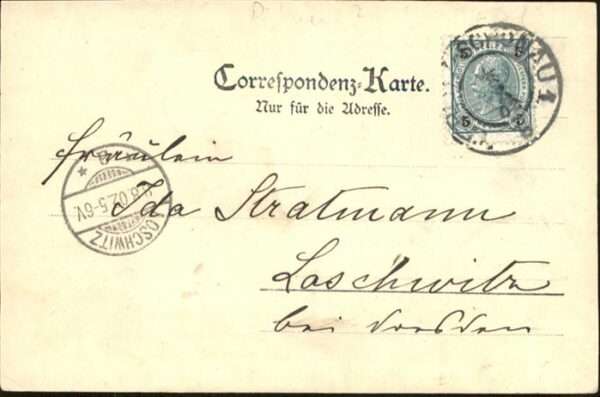 Correspondenz-Karte.
Nur für die Adresse.
SCHÖNAU 1
5 5
5 5
Fräulein
Ida Stratmann
Loschwitz
bei Dresden
LOSCHWITZ
8.02.5-6V.